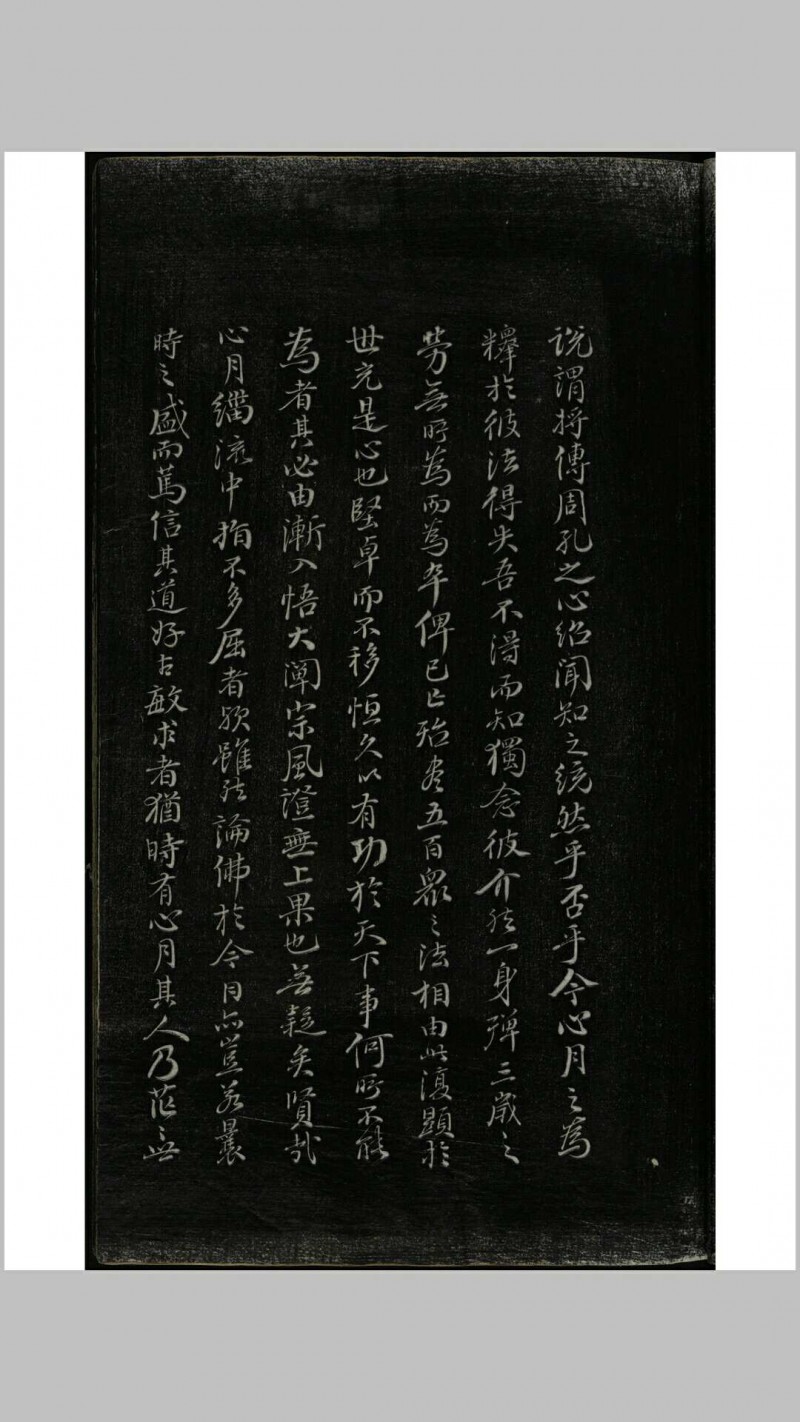 説謂將傳周孔之心紹聞知之統然乎否乎今心月之為
釋於彼法得失吾不得而知獨念彼介然一身殫三歲之
勞無所為而為卒俾已亡殆盡五百眾之法相由此復顯於
世充是心也堅卓而不移恒久以有功於天下事何所不能
為者其必由漸入悟大闡宗風證無上果也無疑矣賢哉
心月緇流中指不多屈者歟雖然論佛於今日亦豈若曩
時之盛而篤信其道好古敏求者猶時有心月其人乃茫無